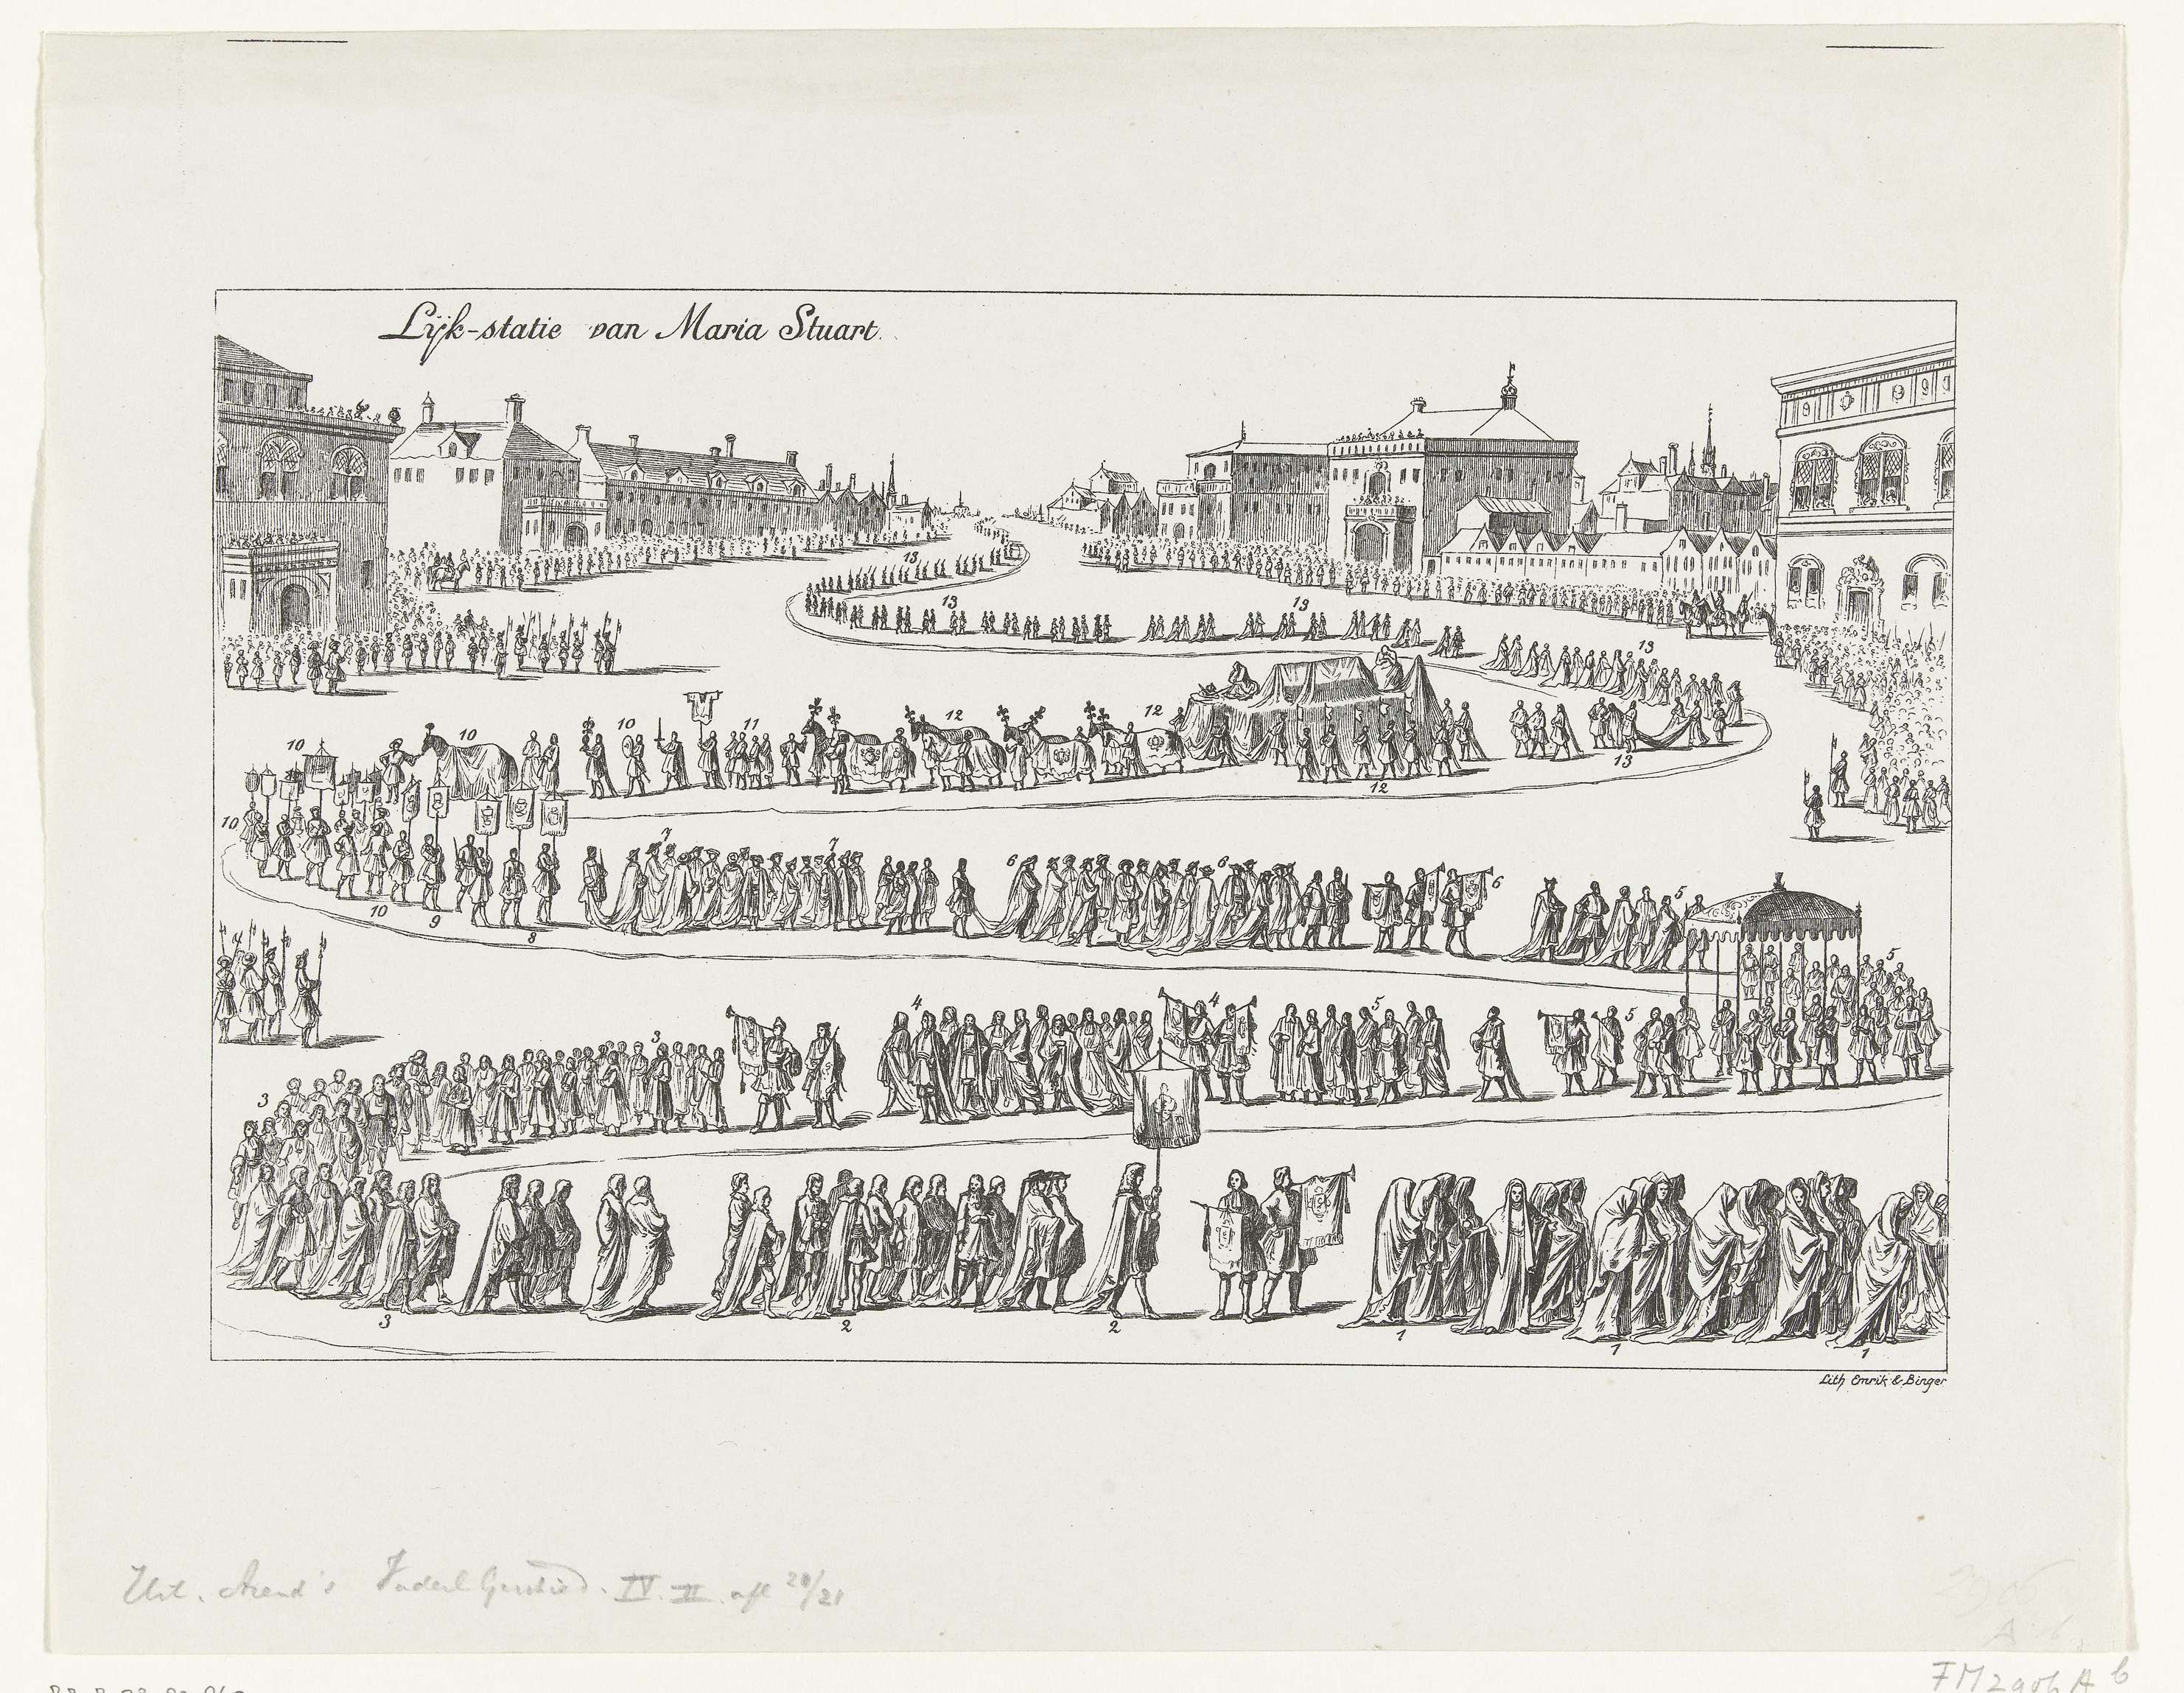 Lijk-statie van Maria Stuart.
13
13 13
13
10 11 12 12
10 10
13
12
10
7 7
6 6 6 5
10 9 8
5
4 4 5 5
3
3
3 2 2 1 1 1
Lith. Emrik & Binger
Uit. Arend's Vaderl Geschied. IV. II. afl 20/21
FM2906 A b